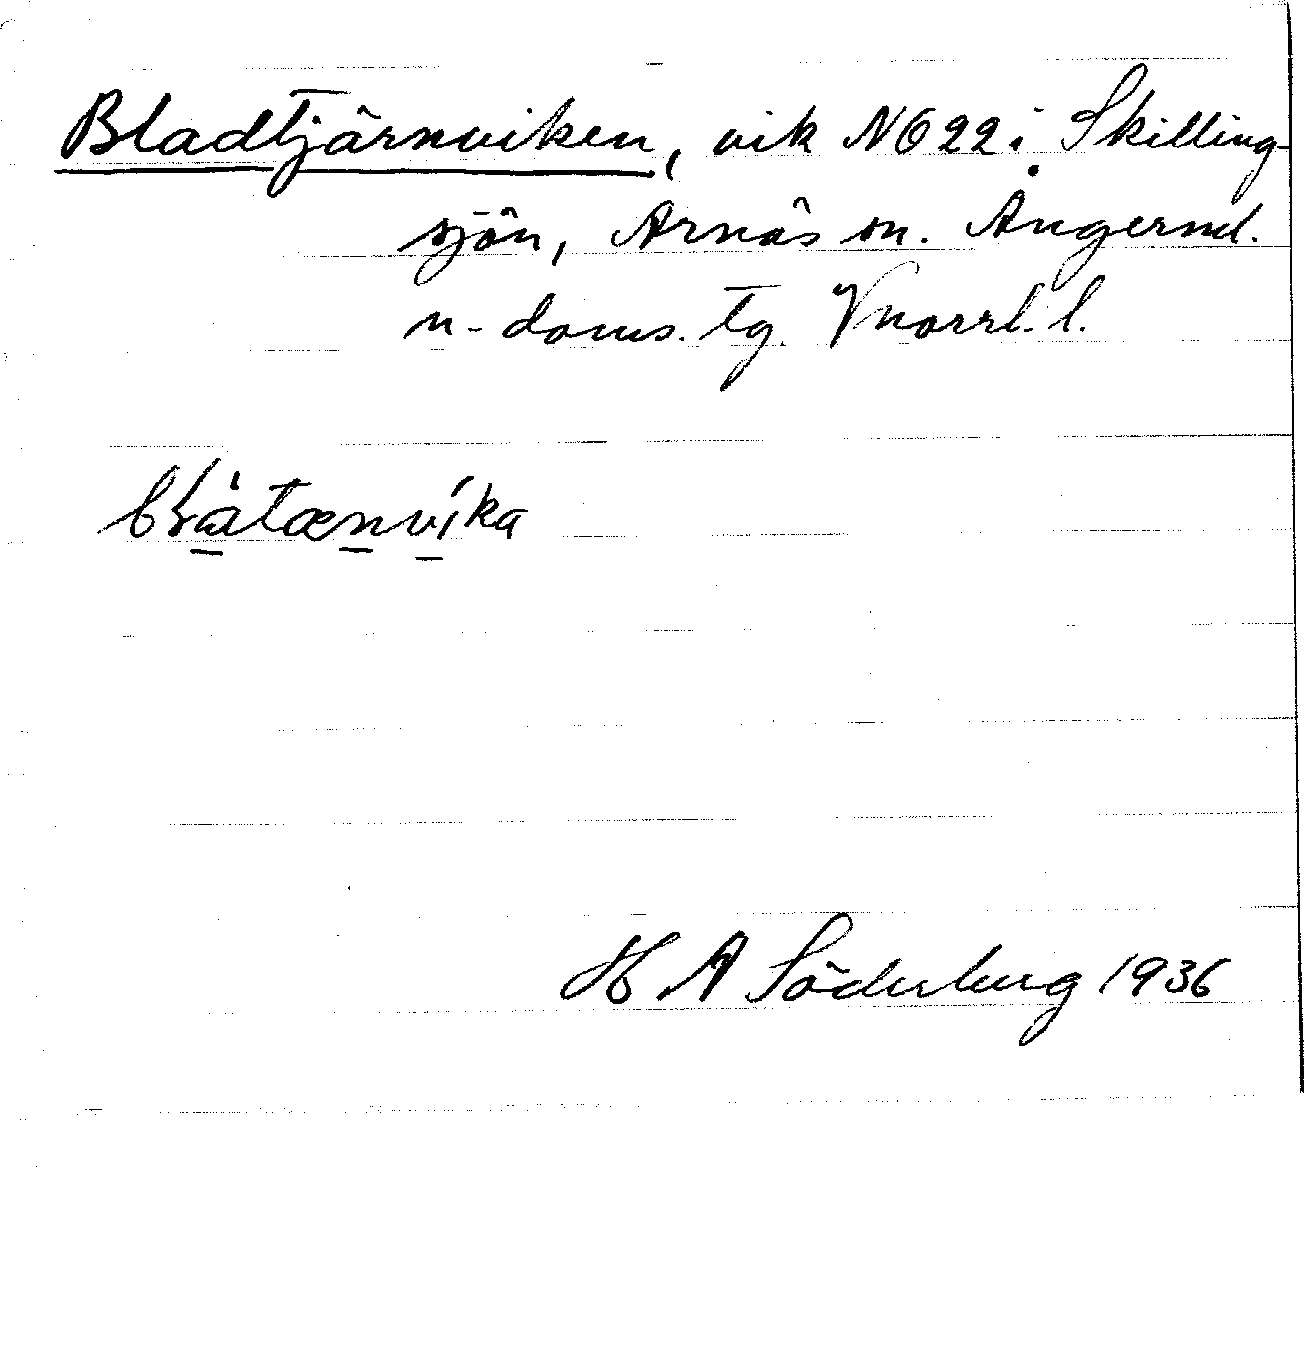 Bladtjärnviken, vik NO 22 i Skilling-
sjön, Arnäs sn. Ångerml.
n. doms. tg. Vnorrl. l.
H A Söderberg 1936